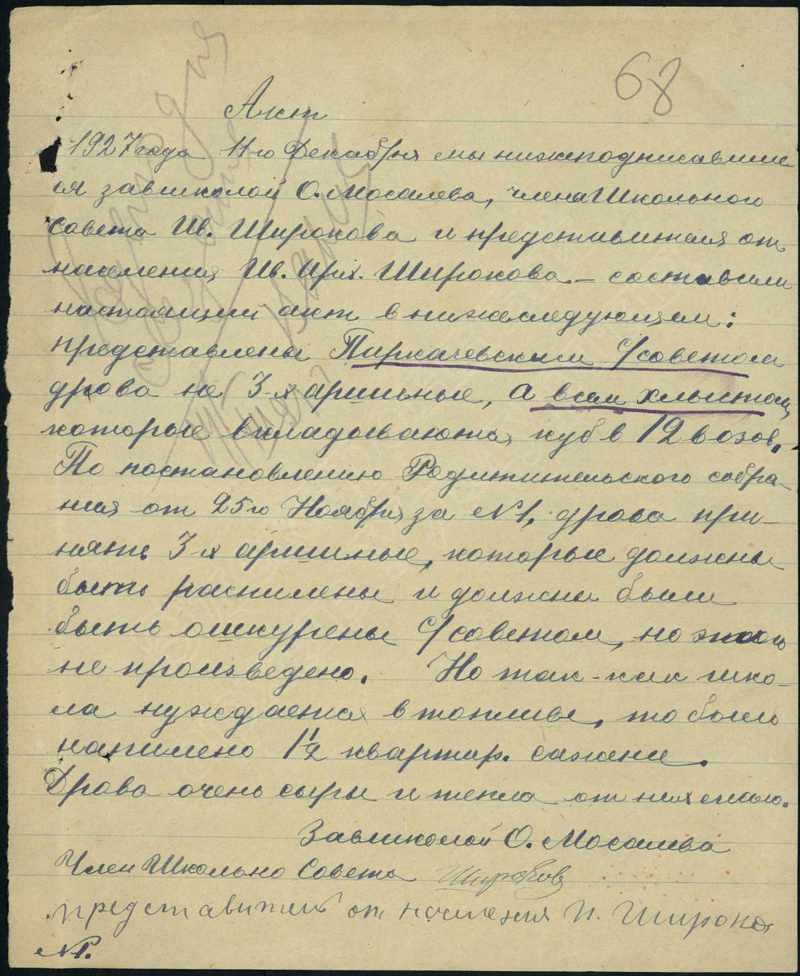 68
Акт
1927 года 11го Декабря мы нижеподписавшие
ся завшколой О. Мосалева, члена Школьного
совета Ив. Широкова и представителя от
населения Ив. Арх. Широкова – составили
настоящий акт в нижеследующем:
представлены Пиркачевским С/советом
дрова не 3-х аршиные, а всем хлыстом,
которые вкладываются куб в 12 возов.
По постановлению Родительского собра-
ния от 25го Ноября за №1, дрова при-
нять 3-х аршиные, которые должны
быть распилены и должны были
быть ошкурены С/советом, но этого
не произведено. Но так-как шко-
ла нуждается в топливе, то было
напилено 1½ квартир. сажени.
Дрова очень сыры и тепла от них мало.
Завшколой О. Мосалева
Член Школьно Совета Широков
представитель от населения И. Широко
№1.